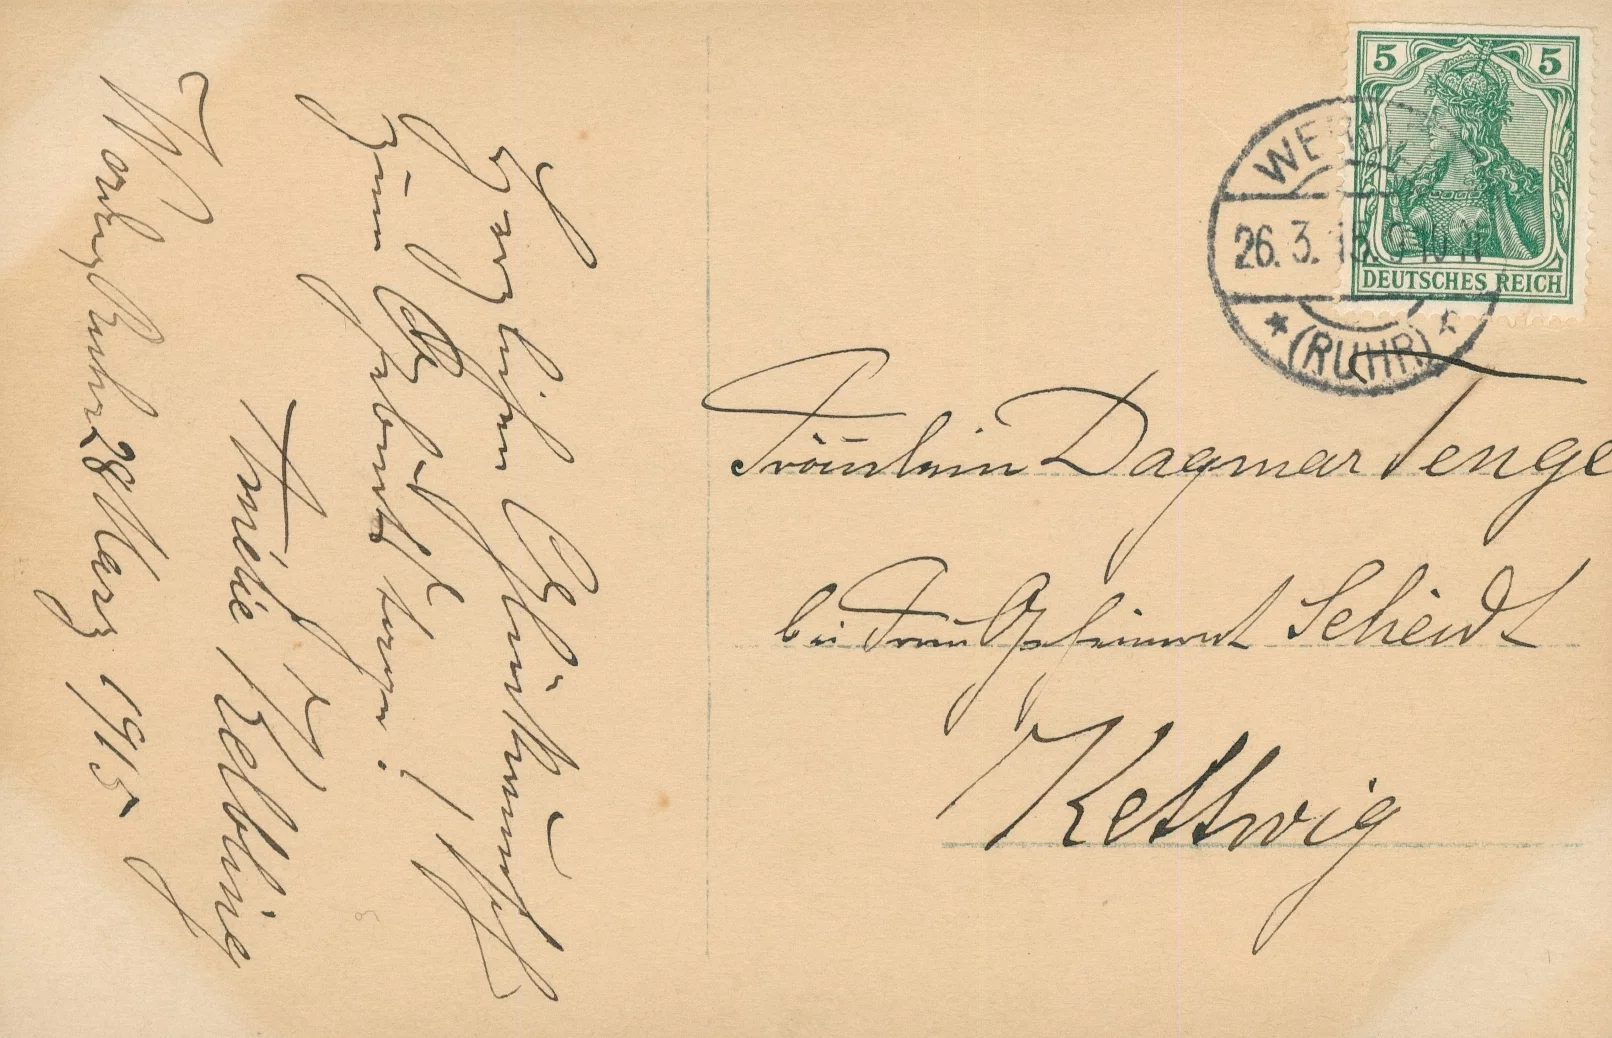 5 5
DEUTSCHES REICH
WER
26.3. 15. 9-10 V
* (RUHR) *
Fräulein Dagmar Tenge
bei Frau Geheimrat Scheidt
Kettwig
Herzlichen Glückwunsch
zum Geburtstage!
Amélie Kelbling
Werden, Ruhr 28 März 1915